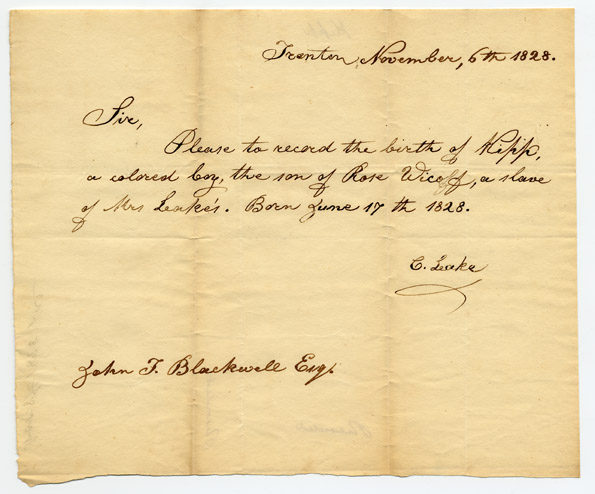 Trenton, November, 6th 1828.
Sir,
Please to record the birth of Hipp,
a colored boy, the son of Rose Wicoff, a slave
of Mrs Leake's. Born June 17th 1828.
C. Leake
John F. Blackwell Esq.